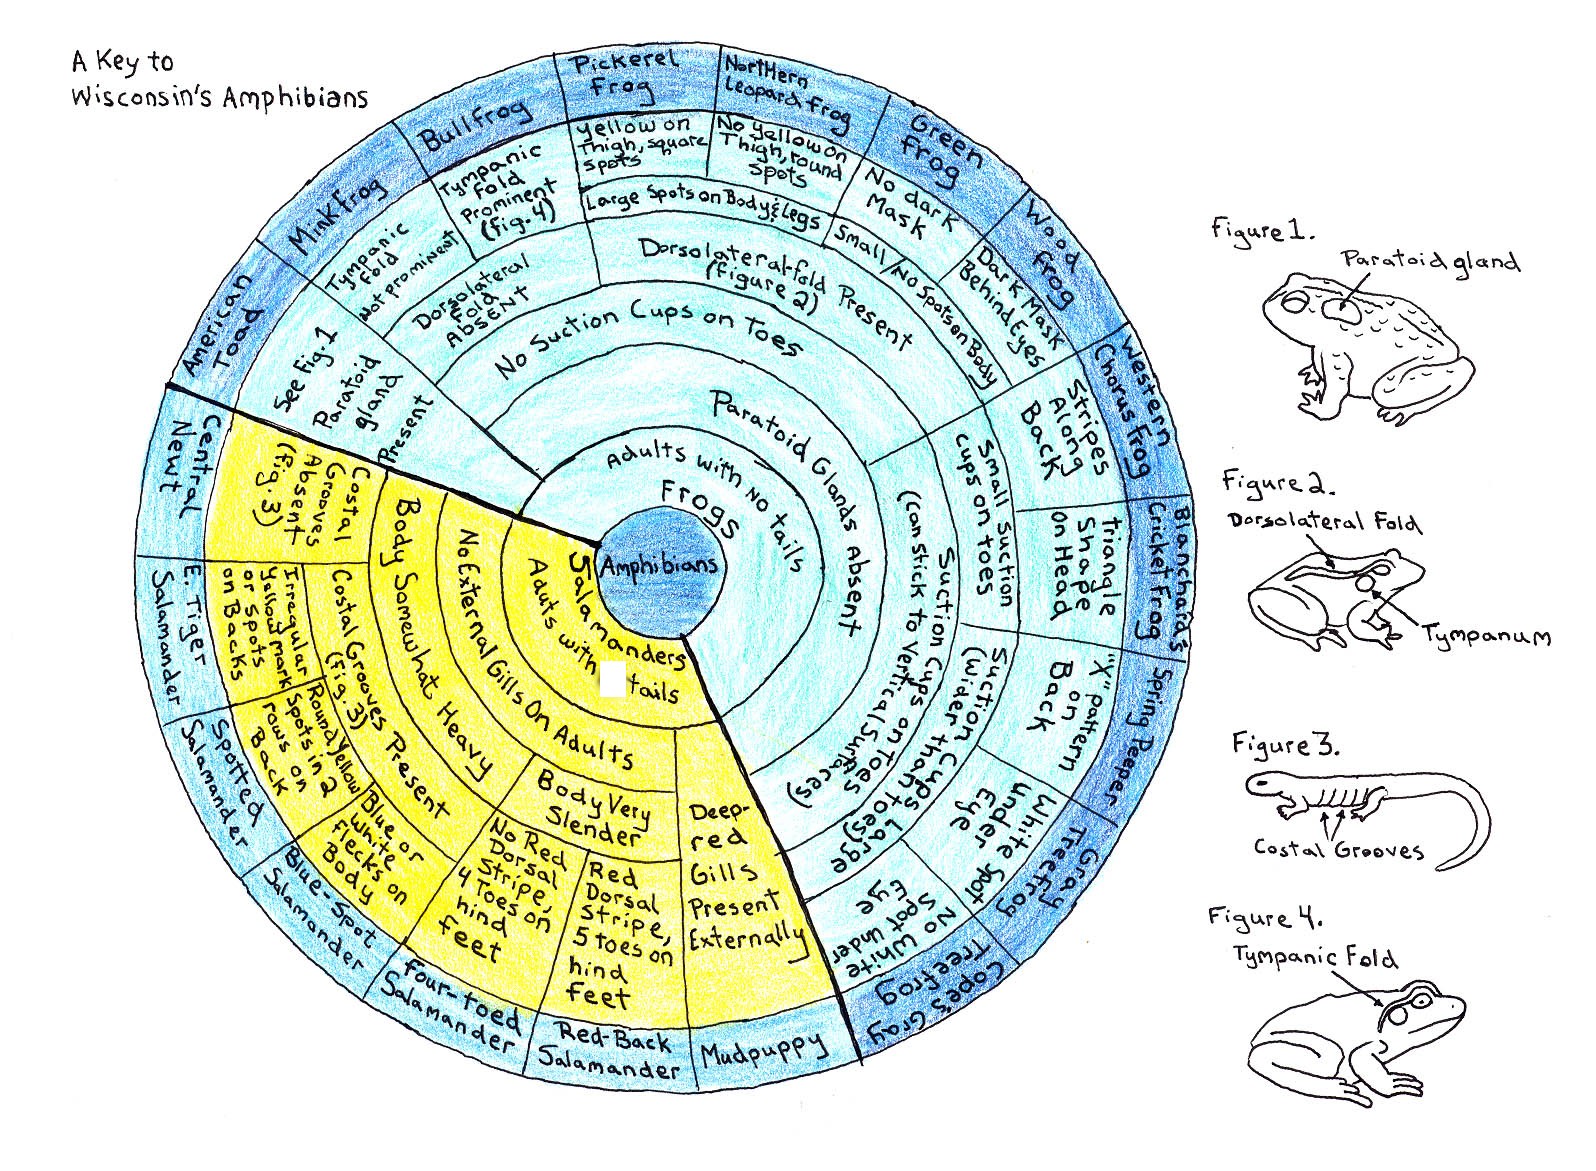 A Key to
Wisconsin's Amphibians
Amphibians
Frogs
Adults with no tails
Paratoid Glands Absent
No Suction Cups on Toes
Dorsolateral fold
Absent
Tympanic
Fold
Not Prominent
Mink Frog
Tympanic
Fold
Prominent
(fig. 4)
Bullfrog
Dorsolateral fold Present
(figure 2)
Large Spots on Body & Legs
Yellow on
Thigh, square
spots
Pickerel
Frog
No Yellow on
Thigh, round
spots
Northern
Leopard Frog
Small/No Spots on Body
No dark
Mask
Green
Frog
Dark Mask
Behind Eyes
Wood
Frog
Suction Cups on Toes
(can stick to Vertical Surfaces)
Small Suction
Cups on toes
Stripes
Along
Back
Western
Chorus Frog
Triangle
Shape
on Head
Blanchard's
Cricket Frog
Suction Cups Large
(wider than toes)
"X" pattern
on
Back
Spring Peeper
White Spot
under
Eye
Gray
Treefrog
No White
Spot under
Eye
Cope's Gray
Treefrog
See Fig. 1
Paratoid
gland
Present
American
Toad
Salamanders
Aduts with
tails
No External Gills On Adults
Body Somewhat Heavy
Costal
Grooves
Absent
(Fig. 3)
Central
Newt
Costal Grooves Present
(Fig. 3)
Irregular
Yellow mark
or spots
on Backs
E. Tiger
Salamander
Round, Yellow
Spots in 2
rows on
Back
Spotted
Salamander
Blue or
White
flecks on
Body
Blue-Spot
Salamander
Body Very
Slender
No Red
Dorsal
Stripe,
4 Toes on
hind
feet
Four-toed
Salamander
Red
Dorsal
Stripe,
5 toes on
hind
feet
Red-Back
Salamander
Deep-
red
Gills
Present
Externally
Mudpuppy
Figure 1.
Paratoid gland
Figure 2.
Dorsolateral Fold
Tympanum
Figure 3.
Costal Grooves
Figure 4.
Tympanic Fold